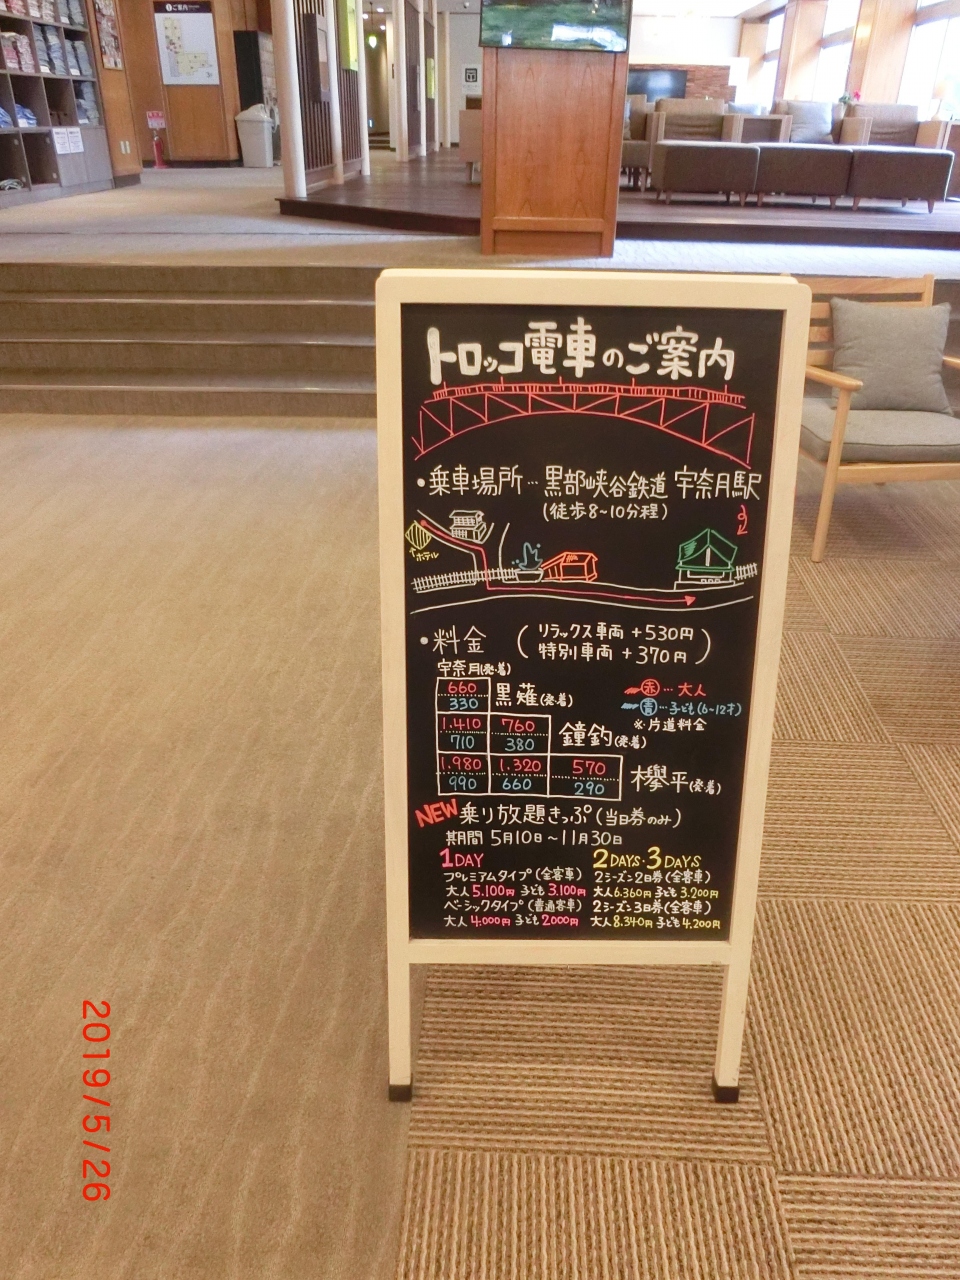 ご案内
トロッコ電車のご案内
・乗車場所…黒部峡谷鉄道 宇奈月駅
(徒歩8~10分程)
ホテル
・料金
(リラックス車両 +530円
特別車両 +370円)
宇奈月(発着)
660
330
黒薙(発着)
赤…大人
青…子ども(6~12才)
※片道料金
1.410 760
710 380
鐘釣(発着)
1.980 1.320 570
990 660 290
欅平(発着)
NEW 乗り放題きっぷ(当日券のみ)
期間 5月10日~11月30日
1DAY
プレミアムタイプ(全客車)
大人5.100円 子ども3.100円
ベーシックタイプ(普通客車)
大人4.000円 子ども2000円
2DAYS・3DAYS
2シーズン2日券(全客車)
大人6.360円 子ども3.200円
2シーズン3日券(全客車)
大人8.340円 子ども4.200円
2019/5/26